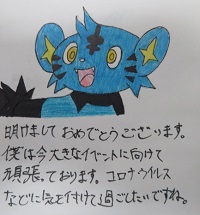 明けまして おめでとうございます。
僕は今大きなイベントに向けて
頑張っております。コロナウイルス
などに気を付けて過ごしたいですね。